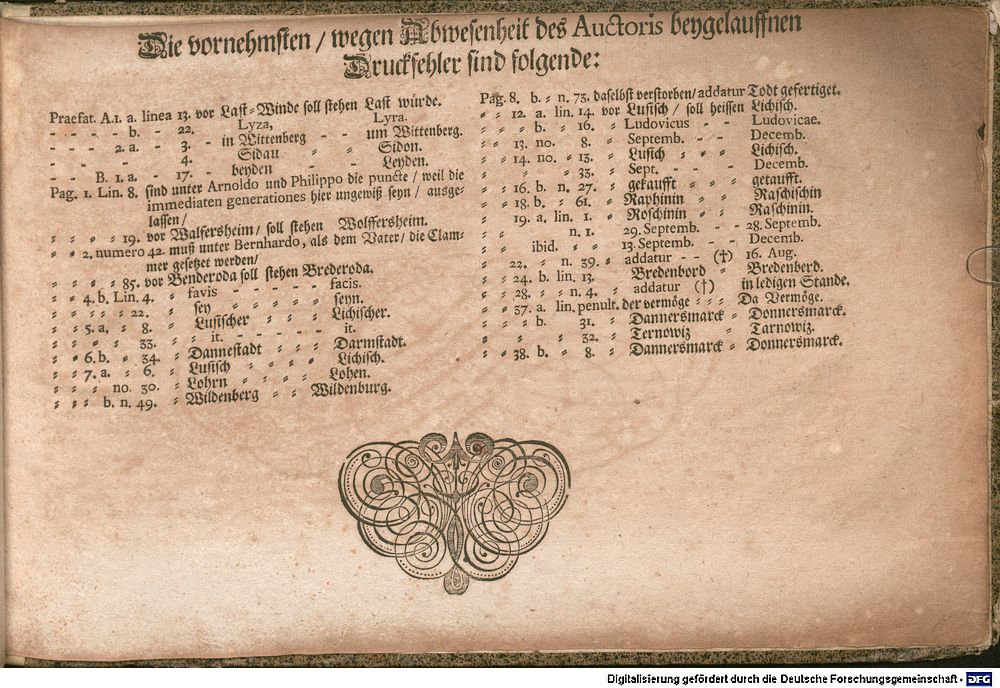 Die vornehmsten / wegen Abwesenheit des Auctoris beygelauffnen
Druckfehler sind folgende:
Praefat. A.1. a. linea 13. vor Last-Winde soll stehen Last würde.
- - - - b. - 22. Lyza, - - Lyra.
- - - 2. a. - 3. - in Wittenberg - - um Wittenberg.
- - - - - 4. Sidau - - Sidon.
- - B. 1. a. - 17. - beyden - - Leyden.
Pag. 1. Lin. 8. sind unter Arnoldo und Philippo die puncte / weil die
immediaten generationes hier ungewiß seyn / ausge-
lassen /
⸗ ⸗ ⸗ ⸗ 19. vor Walfersheim / soll stehen Wolffersheim.
⸗ ⸗ 2. numero 42. muß unter Bernhardo, als dem Vater / die Clam-
mer gesetzet werden /
⸗ ⸗ ⸗ ⸗ 85. vor Benderoda soll stehen Brederoda.
⸗ ⸗ 4. b. Lin. 4. ⸗ favis - - - - - facis.
⸗ ⸗ ⸗ ⸗ ⸗ 22. ⸗ sey ⸗ ⸗ ⸗ ⸗ seyn.
⸗ ⸗ 5. a. ⸗ 8. ⸗ Lusischer ⸗ ⸗ ⸗ Lichischer.
⸗ ⸗ ⸗ ⸗ 33. ⸗ it. - - - - - it.
⸗ ⸗ 6. b. ⸗ 34. ⸗ Dannestadt ⸗ ⸗ ⸗ Darmstadt.
⸗ ⸗ 7. a. ⸗ 6. ⸗ Lusisch ⸗ ⸗ ⸗ ⸗ Lichisch.
⸗ ⸗ ⸗ no. 30. ⸗ Lohrn ⸗ ⸗ ⸗ ⸗ Lohen.
⸗ ⸗ ⸗ b. n. 49. ⸗ Wildenberg ⸗ ⸗ Wildenburg.
Pag. 8. b. ⸗ n. 73. daselbst verstorben / addatur Todt gefertiget.
⸗ ⸗ 12. a. lin. 14. vor Lusisch / soll heissen Lichisch.
⸗ ⸗ ⸗ b. ⸗ 16. ⸗ Ludovicus - - Ludovicae.
⸗ ⸗ 13. no. 8. ⸗ Septemb. - - Decemb.
⸗ ⸗ 14. no. ⸗ 13. ⸗ Lusich ⸗ ⸗ ⸗ Lichisch.
⸗ ⸗ ⸗ 33. ⸗ Sept. - - - Decemb.
⸗ ⸗ 16. b. n. 27. ⸗ gekaufft ⸗ ⸗ ⸗ getaufft.
⸗ ⸗ 18. b. ⸗ 61. ⸗ Raphinin ⸗ ⸗ Raschischin
⸗ 19. a. lin. 1. ⸗ Roschinin ⸗ ⸗ Raschinin.
⸗ n. 1. 29. Septemb. - - 28. Septemb.
⸗ ⸗ ibid. ⸗ ⸗ 13. Septemb. - - Decemb.
⸗ 22. ⸗ n. 39. ⸗ addatur - - (†) 16. Aug.
⸗ ⸗ 24. b. lin. 13. Bredenbord ⸗ Bredenberd.
⸗ ⸗ 28. ⸗ ⸗ n. 4. ⸗ addatur (†) in ledigen Stande.
⸗ ⸗ 37. a. lin. penult. der vermöge ⸗ ⸗ ⸗ Da Vermöge.
⸗ ⸗ ⸗ b. 31. ⸗ Dannersmarck ⸗ Donnersmarck.
⸗ ⸗ ⸗ 32. ⸗ Ternowiz ⸗ Tarnowiz.
⸗ ⸗ 38. b. ⸗ 8. ⸗ Dannersmarck ⸗ Donnersmarck.
Digitalisierung gefördert durch die Deutsche Forschungsgemeinschaft - DFG